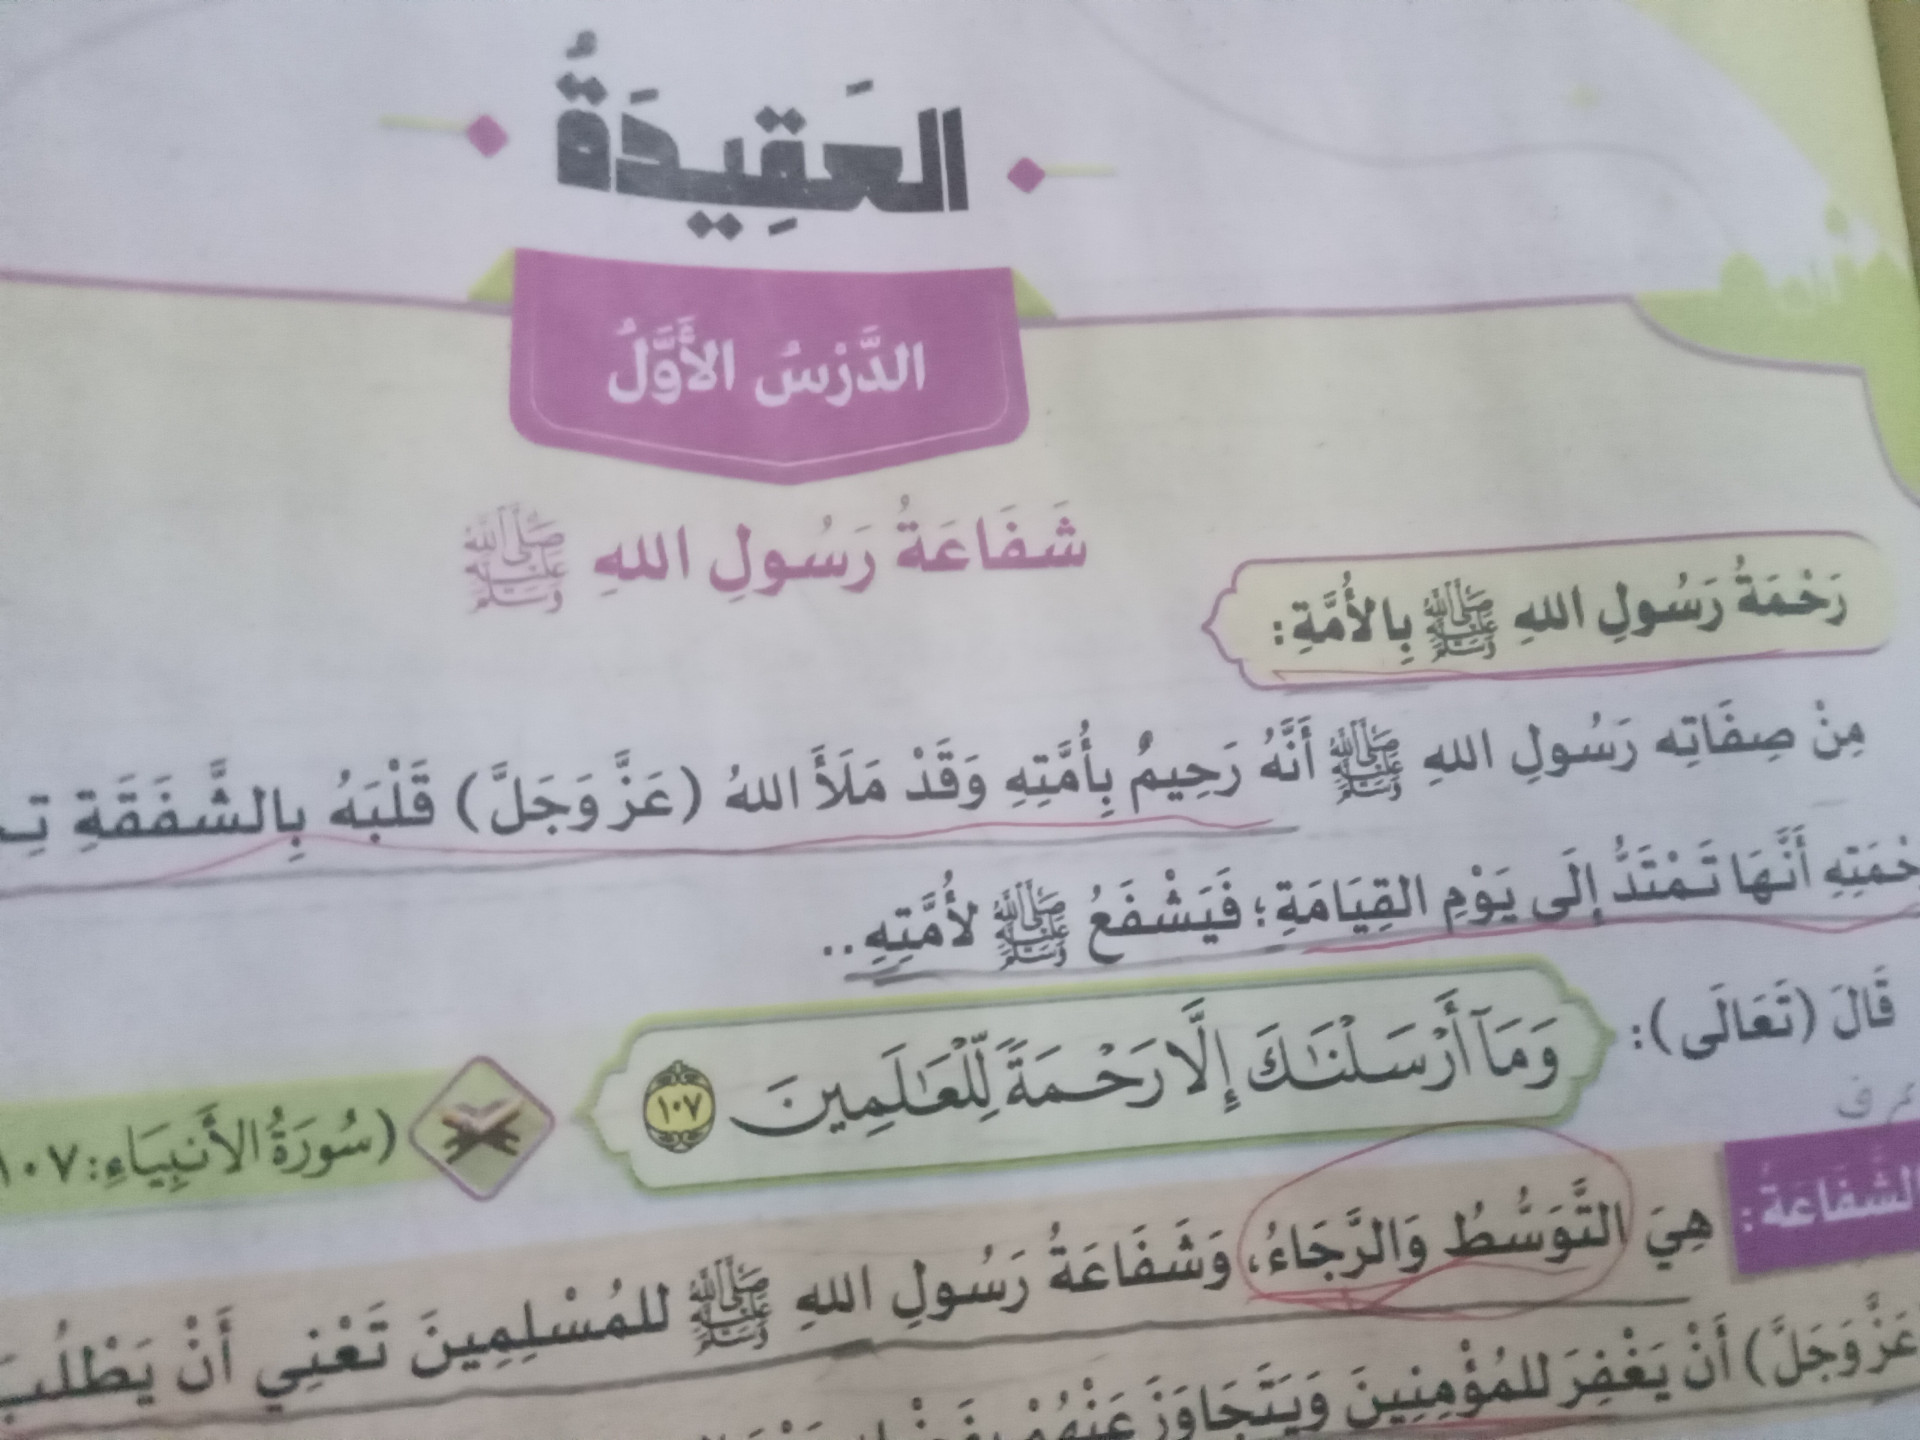 العَقِيدَةُ
الدَّرْسُ الأَوَّلُ
شَفَاعَةُ رَسُولِ اللهِ ﷺ
رَحْمَةُ رَسُولِ اللهِ ﷺ بِالأُمَّةِ:
مِنْ صِفَاتِه رَسُولِ اللهِ ﷺ أَنَّهُ رَحِيمٌ بِأُمَّتِهِ وَقَدْ مَلَأَ اللهُ (عَزَّ وَجَلَّ) قَلْبَهُ بِالشَّفَقَةِ
أَنَّهَا تَمْتَدُّ إِلَى يَوْمِ القِيَامَةِ؛ فَيَشْفَعُ ﷺ لأُمَّتِهِ..
قَالَ (تَعَالَى): وَمَآ أَرْسَلْنَٰكَ إِلَّا رَحْمَةً لِّلْعَٰلَمِينَ ١٠٧ (سُورَةُ الأَنْبِيَاءِ: ١٠٧
الشَّفَاعَةُ: هِيَ التَّوَسُّطُ وَالرَّجَاءُ، وَشَفَاعَةُ رَسُولِ اللهِ ﷺ للمُسْلِمِينَ تَعْنِي أَنْ يَطْلُبَ
عَزَّ وَجَلَّ) أَنْ يَغْفِرَ للمُؤْمِنِينَ وَيَتَجَاوَزَ عَنْهُمْ